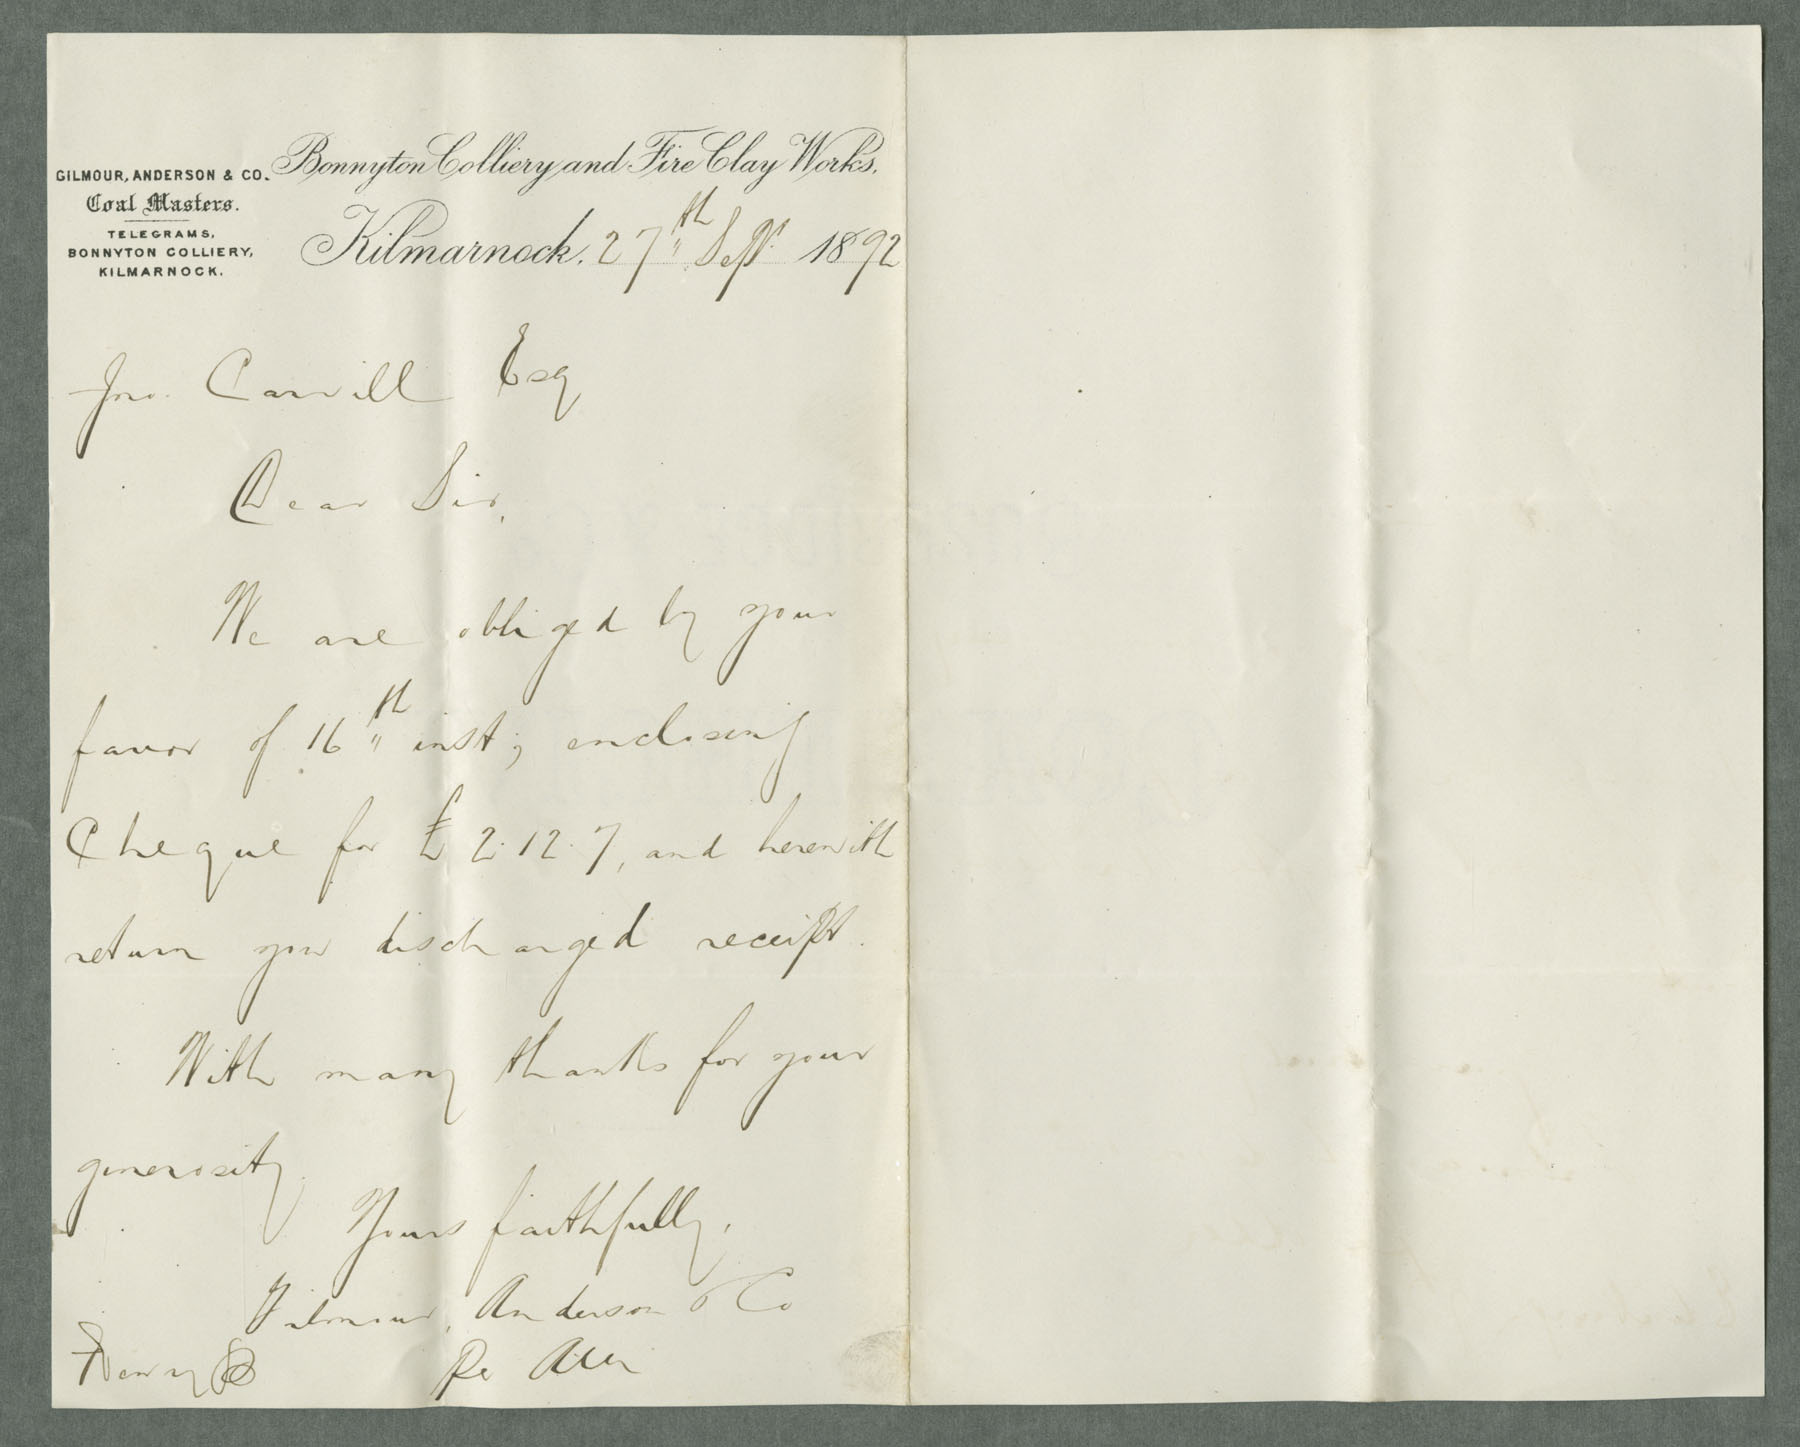 GILMOUR, ANDERSON & CO.
Coal Masters.
TELEGRAMS,
BONNYTON COLLIERY,
KILMARNOCK.
Bonnyton Colliery and Fire Clay Works.
Kilmarnock. 27th Sept. 1892
Jno. Carvill Esq
Dear Sir,
We are obliged by your
favor of 16th inst; enclosing
Cheque for £2.12.7, and herewith
return you discharged receipt.
With many thanks for your
generosity.
Yours faithfully,
Gilmour, Anderson & Co
Newry
Per